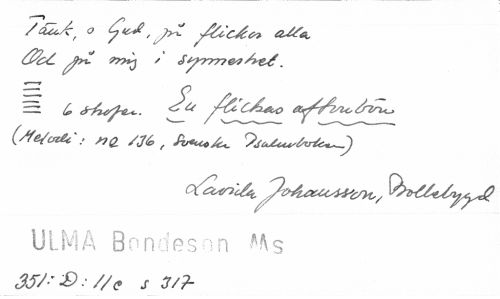 Tänk, o Gud, på flickor alla
Och på mig i synnerhet.
6 strofer. En flickas aftonbön
(Melodi: nr 136, Svenska Psalmboken)
Lavida Johansson, Bollebygd
ULMA Bondeson Ms
351: D: 11c s 317